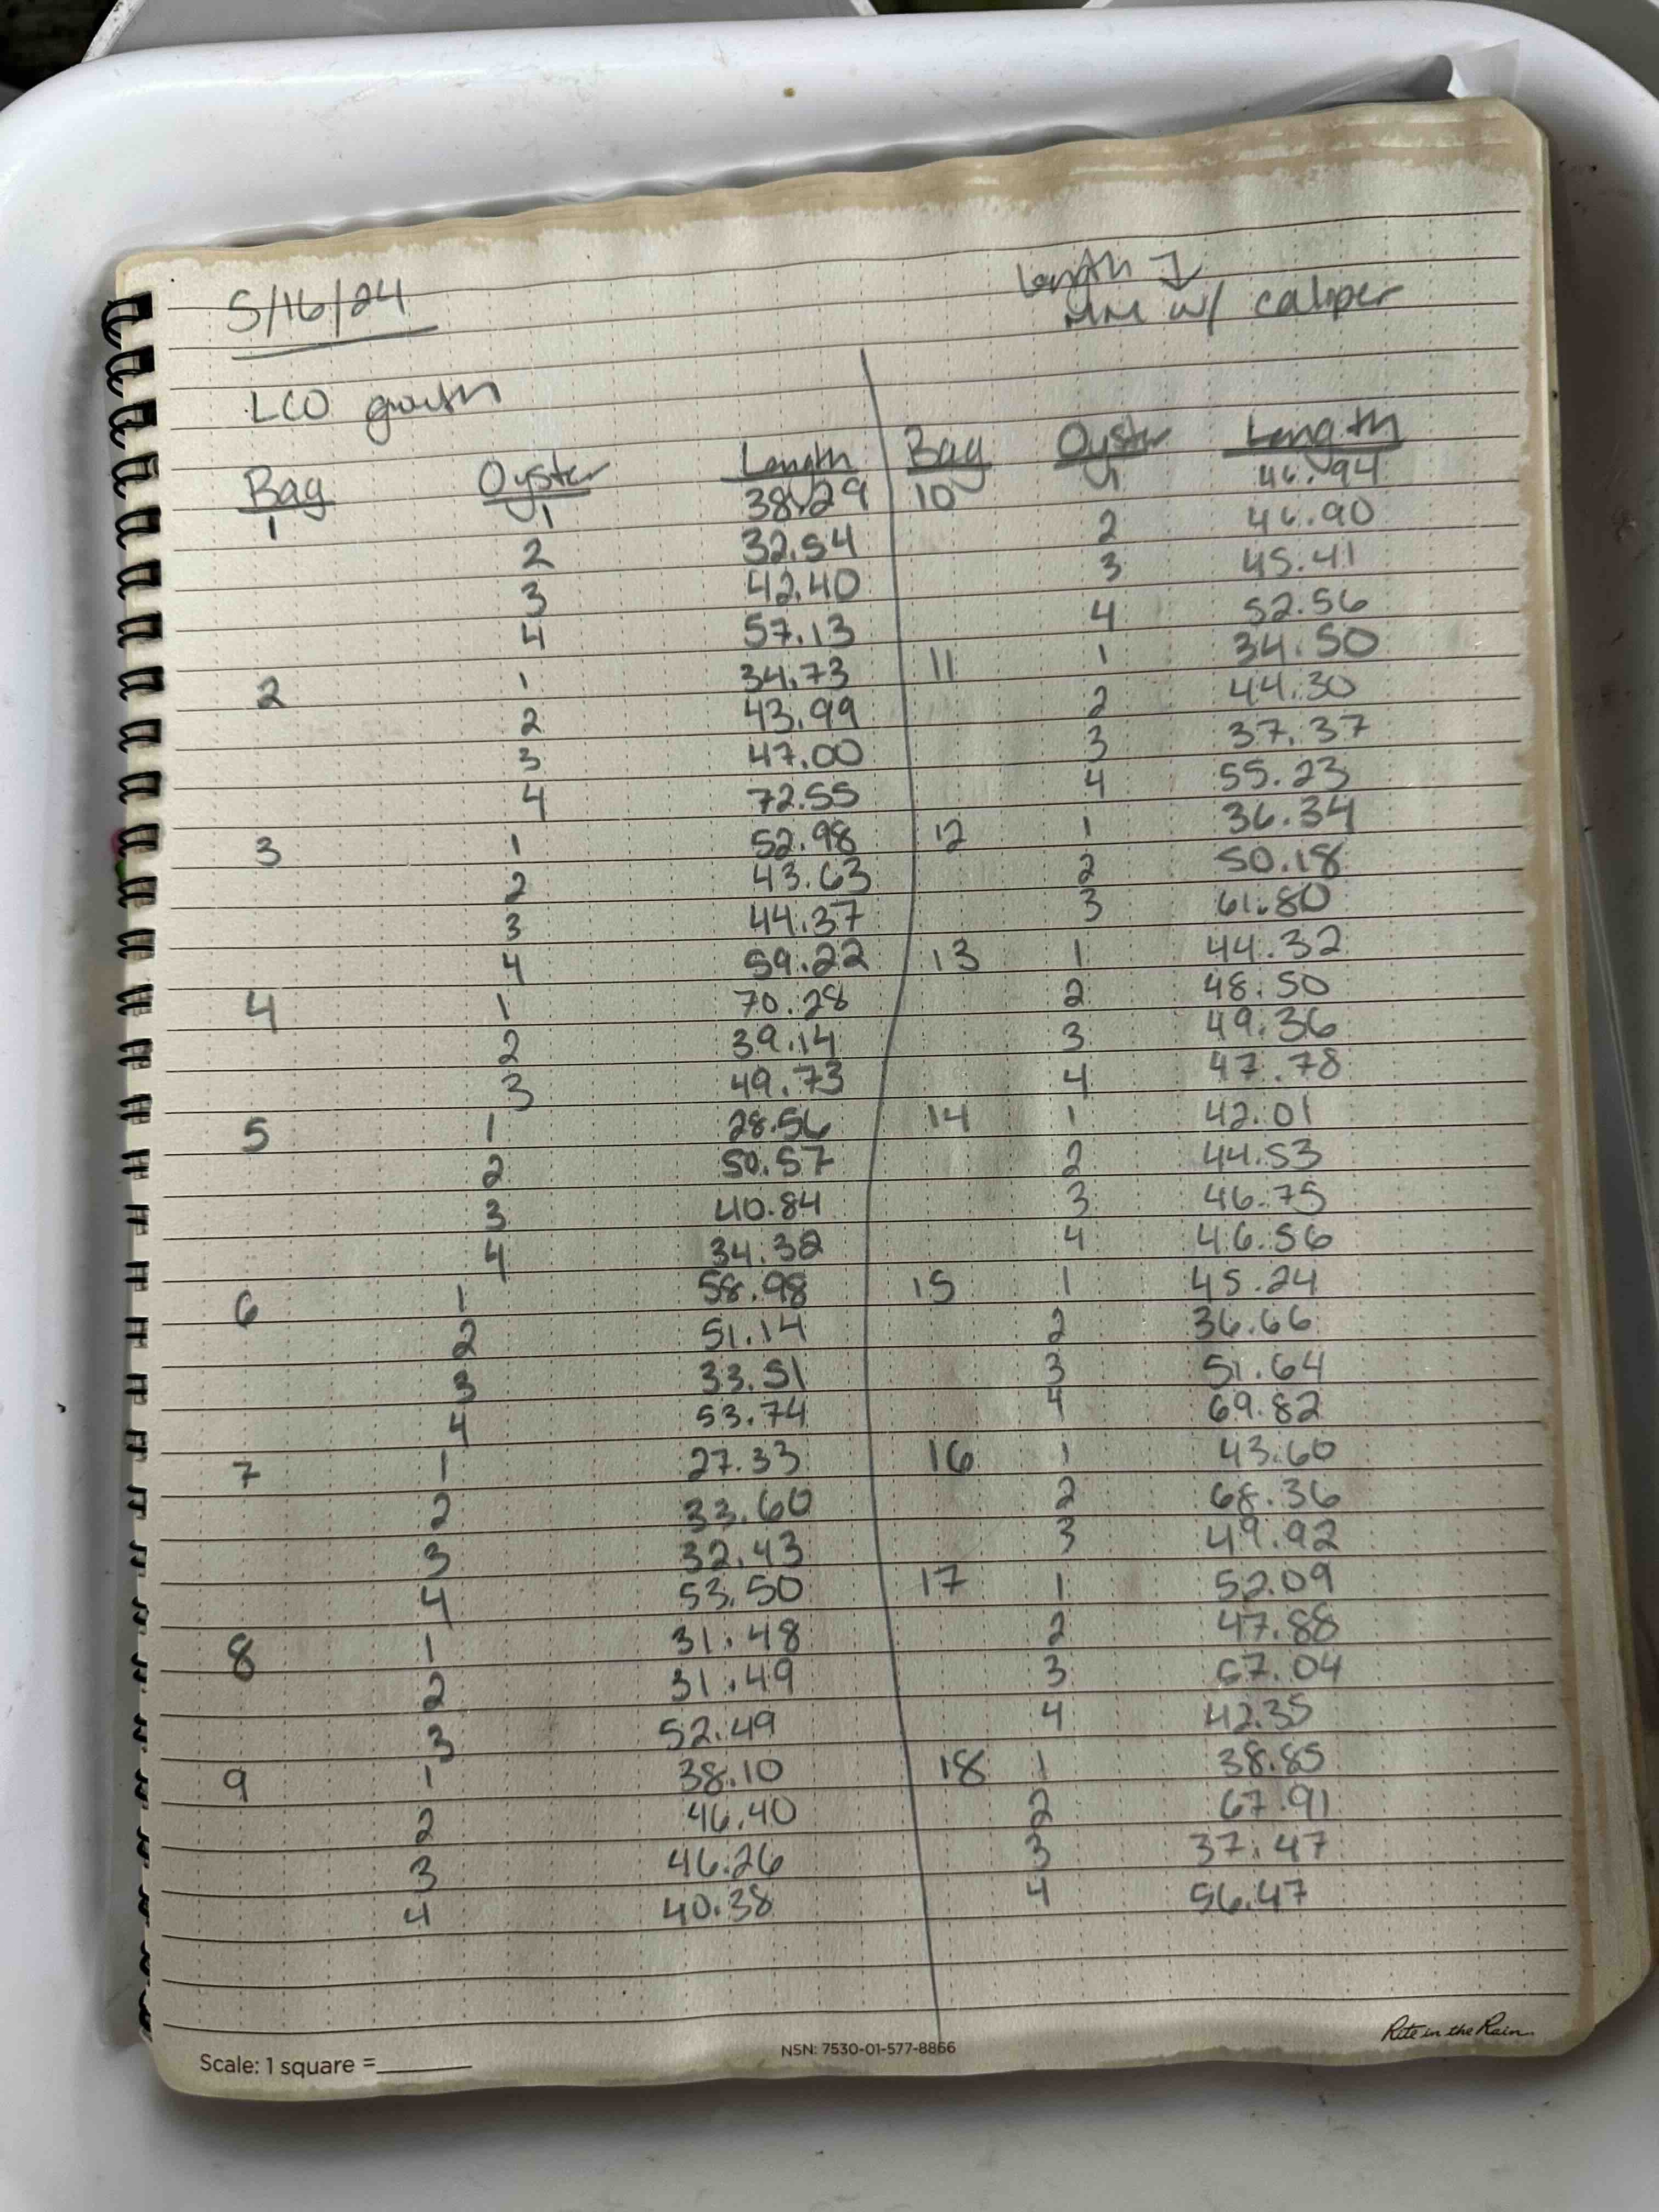 5/16/24
length →
mm w/ caliper
LCO growth
Bag Oyster Length
1 1 38.29
2 32.54
3 42.40
4 57.13
2 1 34.73
2 43.99
3 47.00
4 72.55
3 1 52.98
2 43.63
3 44.37
4 59.22
4 1 70.28
2 39.14
3 49.73
5 1 28.56
2 50.57
3 40.84
4 34.32
6 1 58.98
2 51.14
3 33.51
4 53.74
7 1 27.33
2 33.60
3 32.43
4 53.50
8 1 31.48
2 31.49
3 52.49
9 1 38.10
2 46.40
3 46.26
4 40.38
Bag Oyster Length
10 1 46.94
2 46.90
3 45.41
4 52.56
11 1 34.50
2 44.30
3 37.37
4 55.23
12 1 36.34
2 50.18
3 61.80
13 1 44.32
2 48.50
3 49.36
4 47.78
14 1 42.01
2 44.53
3 46.75
4 46.56
15 1 45.24
2 36.66
3 51.64
4 69.82
16 1 43.60
2 68.36
3 49.92
17 1 52.09
2 47.88
3 67.04
4 42.35
18 1 38.85
2 67.91
3 37.47
4 56.47
Scale: 1 square =
NSN: 7530-01-577-8866
Rite in the Rain